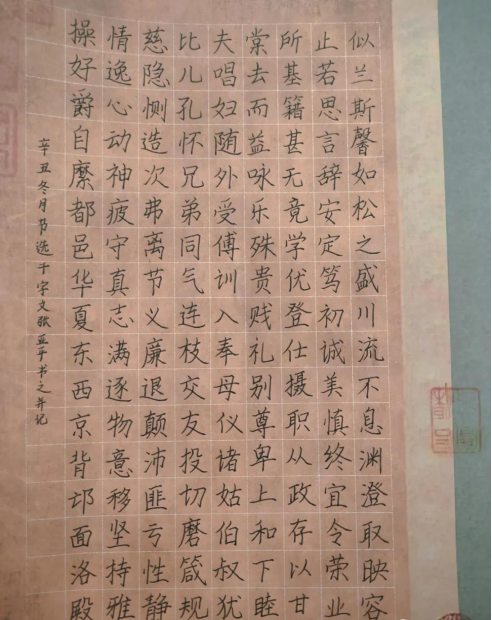 似兰斯馨如松之盛川流不息渊澄取映容
止若思言辞安定笃初诚美慎终宜令荣业
所基籍甚无竟学优登仕摄职从政存以甘
棠去而益咏乐殊贵贱礼别尊卑上和下睦
夫唱妇随外受傅训入奉母仪诸姑伯叔犹
比儿孔怀兄弟同气连枝交友投切磨箴规
慈隐恻造次弗离节义廉退颠沛匪亏性静
情逸心动神疲守真志满逐物意移坚持雅
操好爵自縻都邑华夏东西京背邙面洛殿
辛丑冬月节选千字文张亚平书之并记